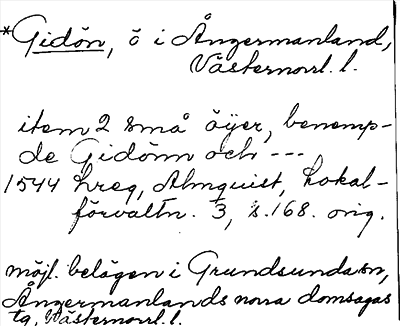 *Gidön, ö i Ångermanland,
Västernorrl. l.
item 2 små öyer, benemp-
de Gidönn och ---
1544 hreg, Almquist, Lokal-
förvaltn. 3, s. 168. orig.
möjl. belägen i Grundsunda sn,
Ångermanlands norra domsagas
tg, Västernorrl. l.